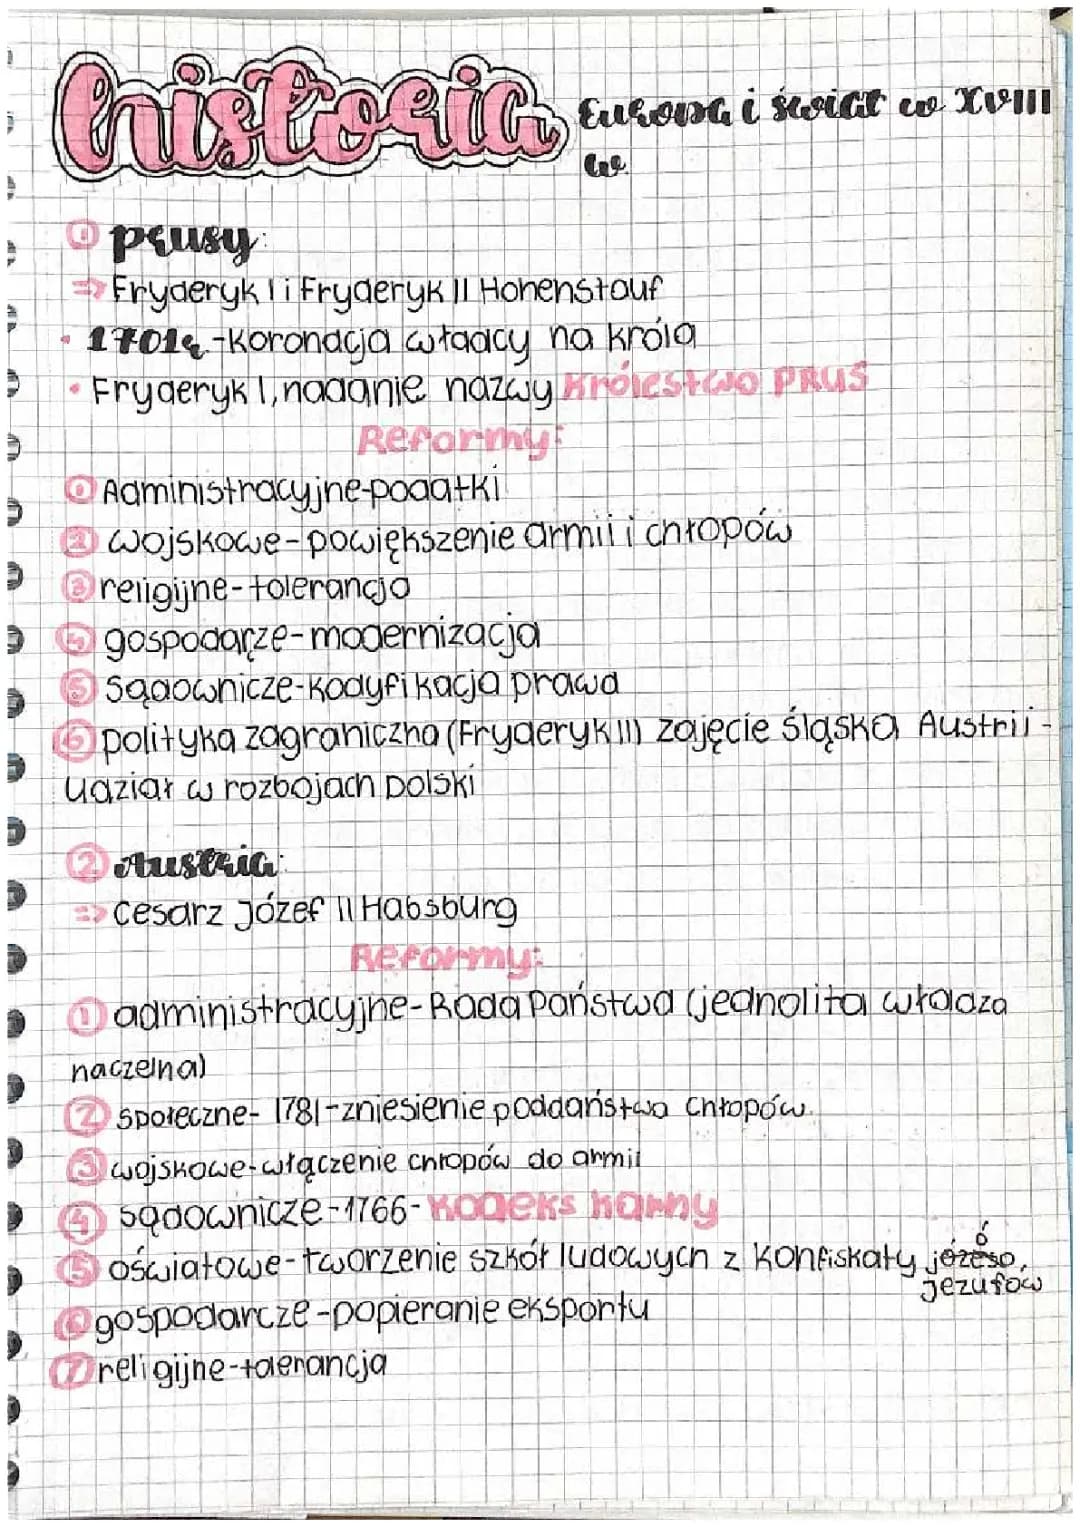 historia Europa i świat w XVIII
w.
① prusy:
=> Fryderyk I i Fryderyk II Hohenstauf
· 1701r.-koronacja władcy na króla
· Fryderyk I, nadanie nazwy Królestwo PRUS
Reformy:
① Administracyjne-podatki
② wojskowe-powiększenie armii i chłopów
③ religijne-tolerancja
④ gospodarcze-modernizacja
⑤ sądownicze-kodyfikacja prawa
⑥ polityka zagraniczna (Fryderyk II) zajęcie śląska Austrii-
udział w rozbojach polski
② Austria:
=> Cesarz Józef II Habsburg
Reformy:
① administracyjne-Rada Państwa (jednolita władza
naczelna)
② społeczne- 1781-zniesienie poddaństwa chłopów.
③ wojskowe-włączenie chłopów do armii
④ sądownicze-1766-kodeks karny
⑤ oświatowe-tworzenie szkół ludowych z konfiskaty
jezufów
⑥ gospodarcze-popieranie eksportu
⑦ religijne-tolerancja